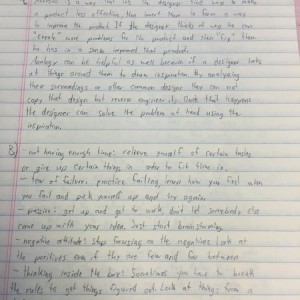 a product less effective, then invert them to form a way
to improve the product. If the designer thinks of way he can
"create" more problems for the product and then "fix" them
he has in a sense improved that product.
Analogy can be helpful as well because if a designer looks
at things around them to draw inspiration. By analyzing
their surroundings or other common designs they can not
copy that design but reverse engineer it. Once that happens
the designer can solve the problem at hand using the
inspiration.
B) - not having enough time: relieve yourself of certain tasks
or give up certain things in order to fit time in.
- fear of failure: practice failing, know how you feel when
you fail and pick yourself up and try again
- passive: get up and get to work, don't let somebody else
come up with your idea. Just start brainstorming.
- negative attitude: Stop focusing on the negatives. Look at
the positives even if they are few and far between
- thinking inside the box: Sometimes you have to break
the rules to get things figured out. Look at things from a